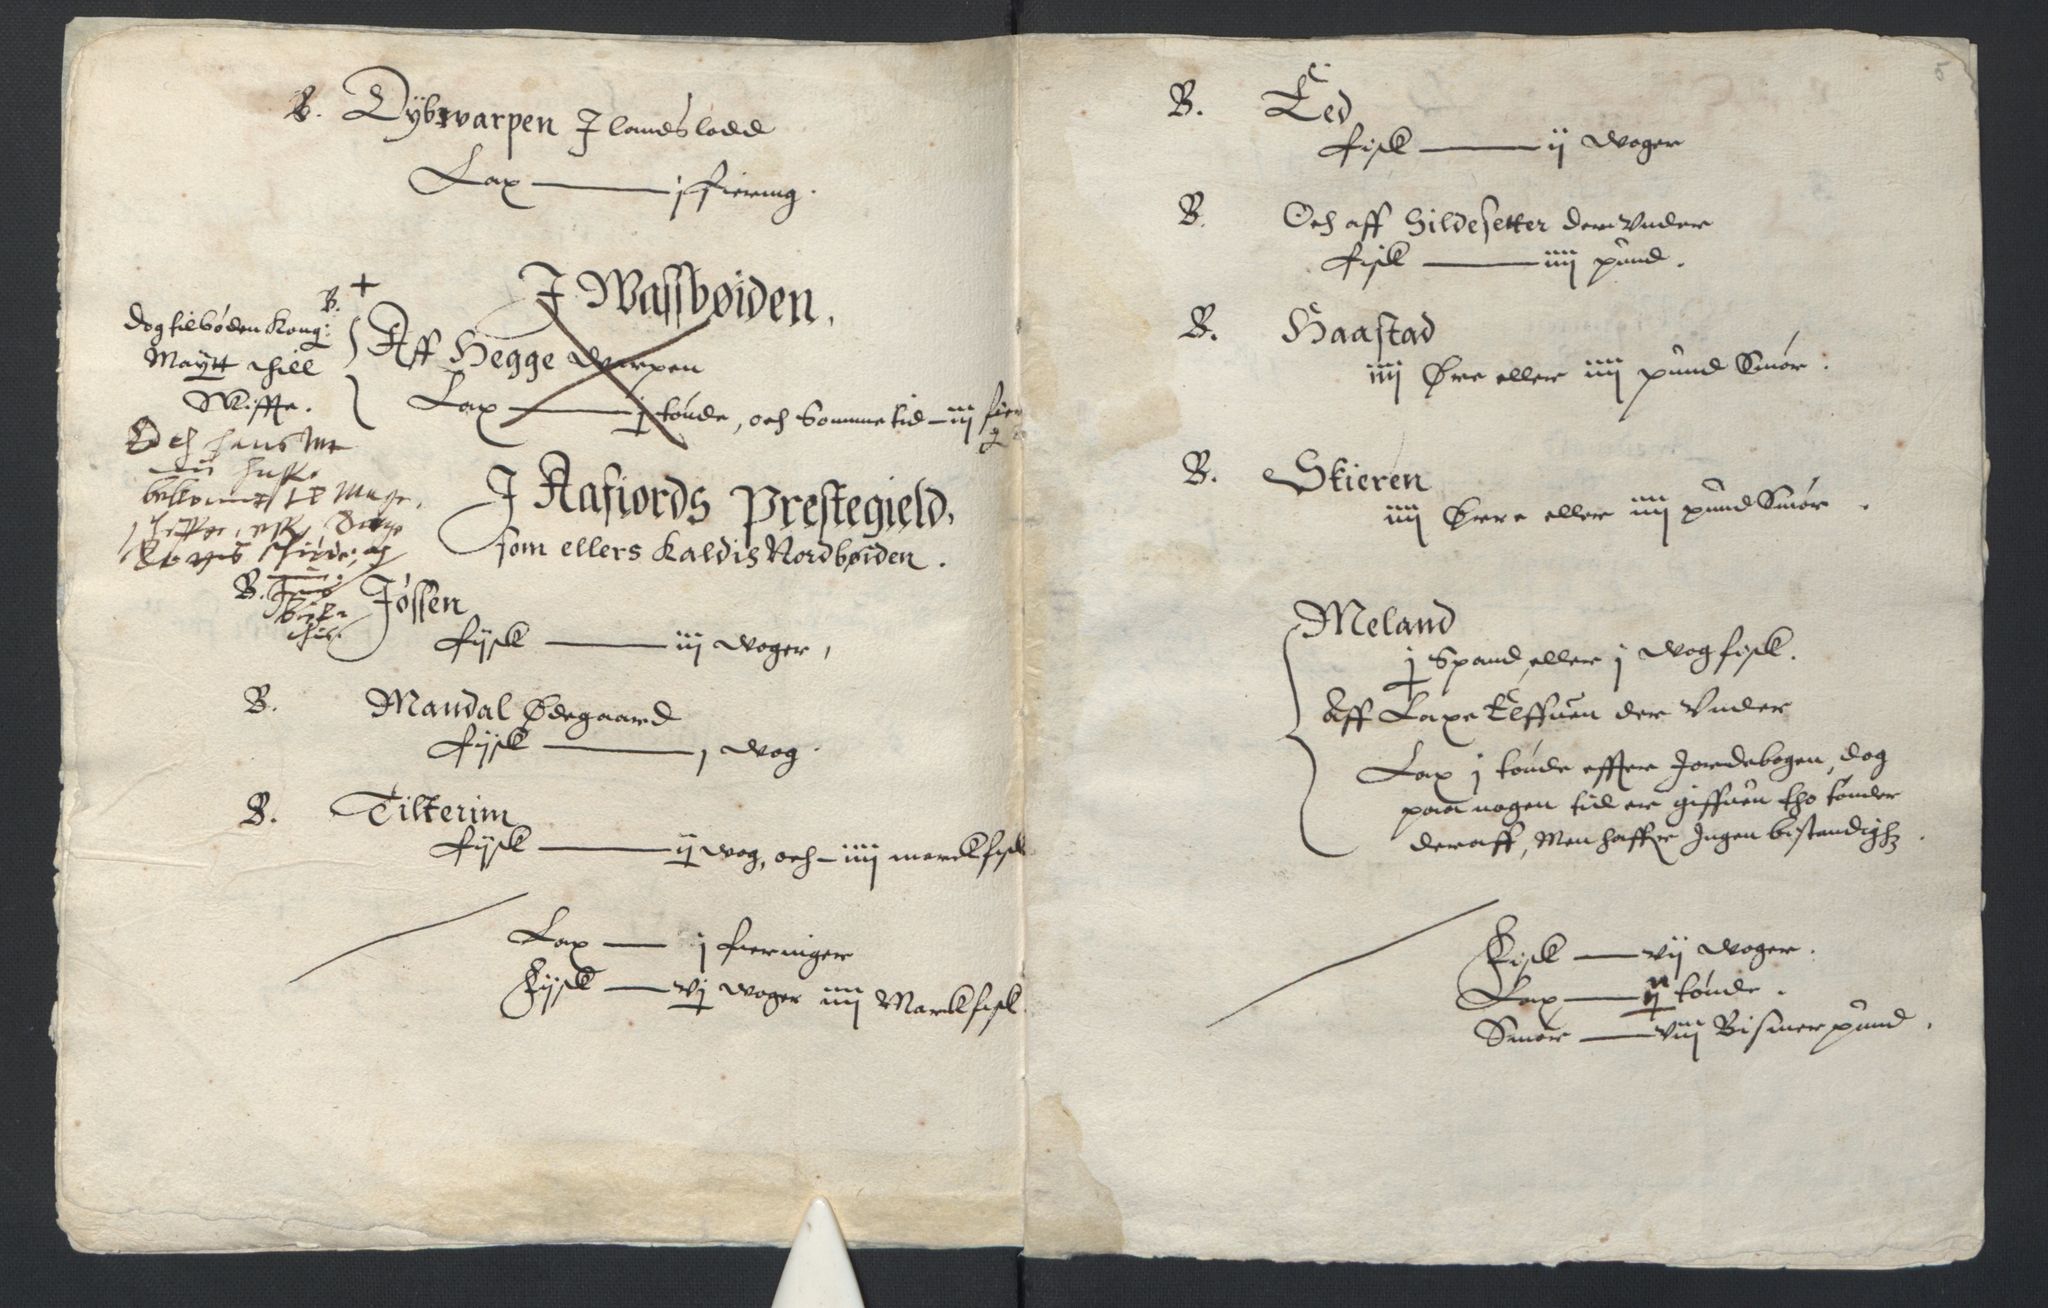 B. Dybwarpen J landslodd
Lax — j fiering.
J Wassbøiden,
B. +
dog tilbøden Kong:
Maytt thill
Skiffte.
Aff Hegge Warpen
Lax — j tønde, och Somme tid — iij fier
Och hans M
J Aafiords Prestegield,
som ellers Kaldis Nordbøiden.
B. Jøssen
fijsk — iij woger,
B. Mandal Ødegaard
fijsk — j wog.
B. Tilterim
fijsk — ij wog, och — iiij marckfisk
Lax — j fieringer
Fijsk — vj woger iiij Marckfisk.
5
B. Eed
fisk — ij woger
B. Och aff Sildesetter der Vnder
fisk — iiij pund.
B. Haastad
iiij Øre eller iiij pund Smør.
B. Skieren
iiij Øere eller iiij pund Smør.
Meland
j Spand, eller j wog fisk.
Aff Laxe Elffuen der Vnder
Lax j tønde effter Jordebogen, dog
paa nogen tid er giffuen tho tønder
deraff, Men haffuer Jngen bestandighz.
Fisk — vij woger.
Lax — ij tønde.
Smør — viij Bismerpund.